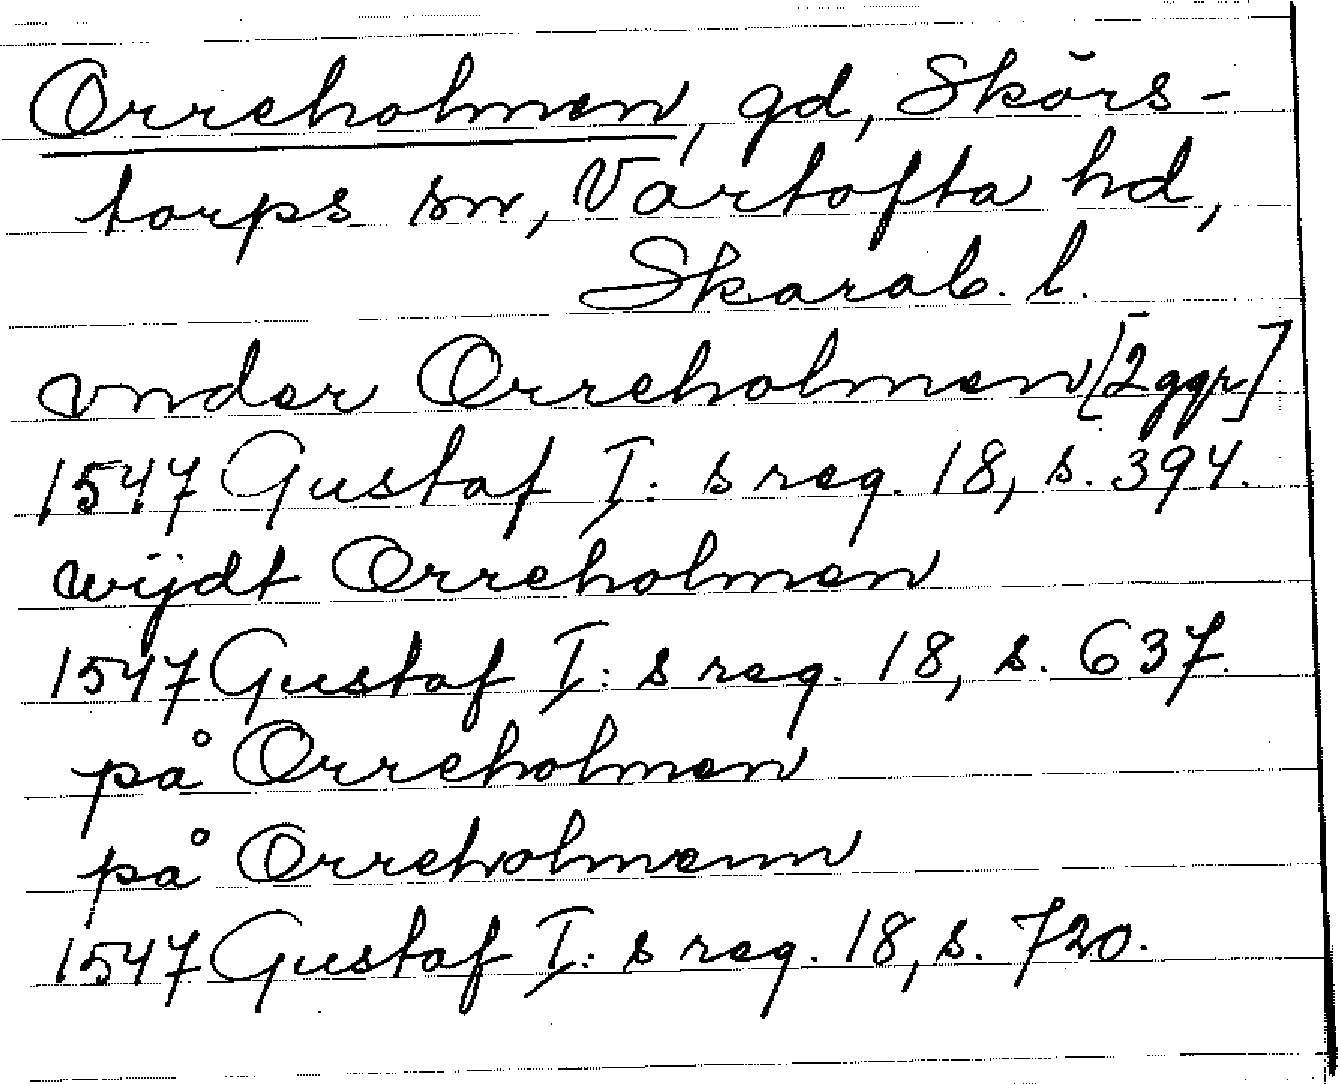 Orreholmen, gd, Skörs-
torps sn, Vartofta hd,
Skarab. l.
vnder Orreholmen [2 ggr]
1547 Gustaf I: s reg. 18, s. 394.
wijdt Orreholmen
1547 Gustaf I: s reg. 18, s. 637.
på Orreholmen
på Orreholmenn
1547 Gustaf I: s reg. 18, s. 720.